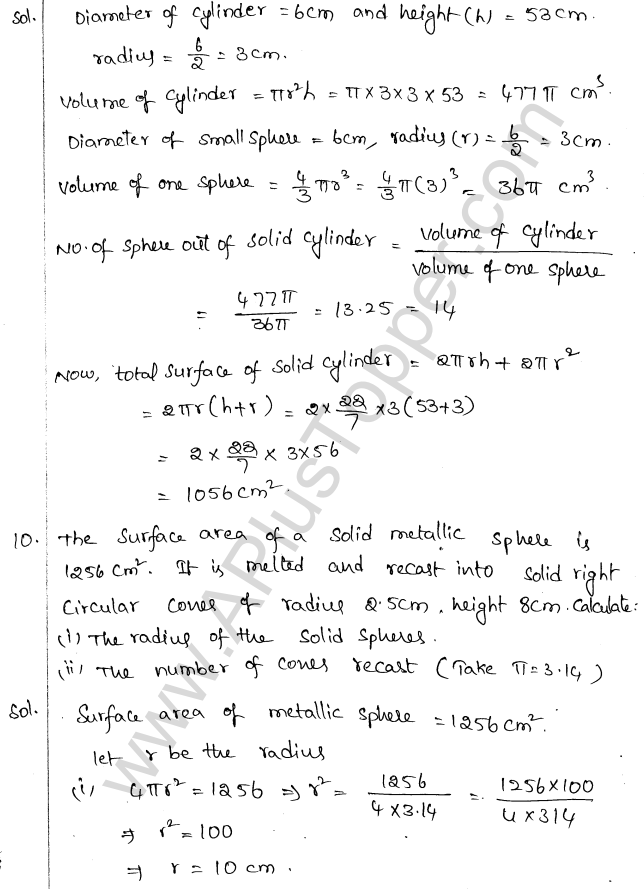 Sol. Diameter of cylinder = 6cm and height(h) = 53cm.
radius = 6/2 = 3cm.
Volume of cylinder = πr²h = π×3×3×53 = 477π cm³.
Diameter of small sphere = 6cm, radius(r) = 6/2 = 3cm.
Volume of one sphere = 4/3 πr³ = 4/3 π(3)³ = 36π cm³.
No. of sphere out of solid cylinder = volume of cylinder / volume of one sphere
= 477π/36π = 13.25 = 14
Now, total surface of solid cylinder = 2πrh + 2πr²
= 2πr(h+r) = 2×22/7×3(53+3)
= 2×22/7×3×56
= 1056cm².
10. The surface area of a solid metallic sphere is
1256cm². It is melted and recast into solid right
circular cones of radius 2.5cm, height 8cm. Calculate:
(i) The radius of the solid spheres.
(ii) The number of cones recast (Take π=3.14)
Sol. Surface area of metallic sphere = 1256cm².
let r be the radius
(i) 4πr² = 1256 ⇒ r² = 1256/4×3.14 = 1256×100/4×314
⇒ r² = 100
⇒ r = 10 cm.
www.APlusTopper.com